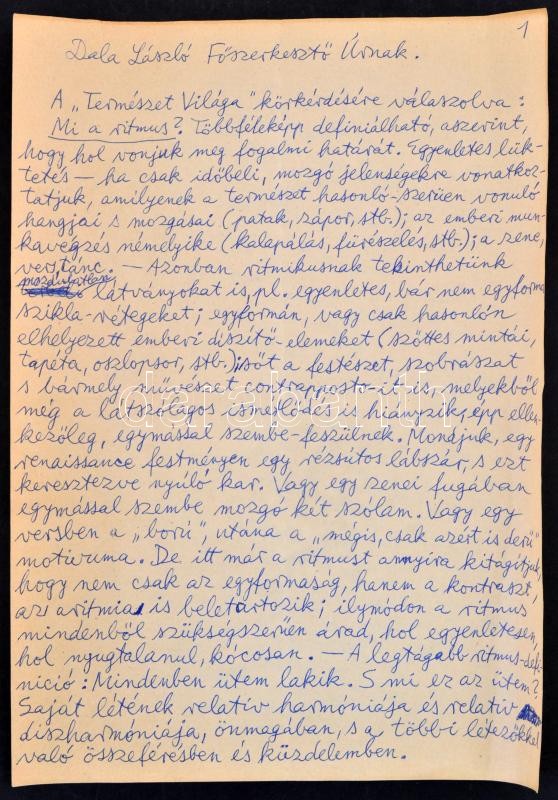 1
Dala László Főszerkesztő Úrnak.
A „Természet Világa" körkérdésére válaszolva:
Mi a ritmus? Többféleképp definiálható, aszerint,
hogy hol vonjuk meg fogalmi határát. Egyenletes lük-
tetés — ha csak időbeli, mozgó jelenségekre vonatkoz-
tatjuk, amilyenek a természet hasonló-szerűen vonuló
hangjai s mozgásai (patak, zápor, stb.); az emberi mun-
kavégzés némelyike (kalapálás, fűrészelés, stb.); a zene,
vers, tánc. — Azonban ritmikusnak tekinthetünk
mozdulatlan
látványokat is, pl. egyenletes, bár nem egyforma
szikla-rétegeket; egyformán, vagy csak hasonlón
elhelyezett emberi díszítő-elemeket (szőttes mintái,
tapéta, oszlopsor, stb.); sőt a festészet, szobrászat
s bármely művészet contrapposto-it is, melyekből
még a látszólagos ismétlődés is hiányzik, épp ellen-
kezőleg, egymással szembe-feszülnek. Mondjuk, egy
renaissance festményen egy rézsútos lábszár, s ezt
keresztezve nyúló kar. Vagy egy zenei fugában
egymással szembe mozgó két szólam. Vagy egy
versben a „ború", utána a „mégis, csak azért is derű"
motívuma. De itt már a ritmust annyira kitágítjuk,
hogy nem csak az egyformaság, hanem a kontraszt,
az aritmia is beletartozik; ilymódon a ritmus
mindenből szükségszerűen árad, hol egyenletesen,
hol nyugtalanul, kócosan. — A legtágabb ritmus-defi-
nició: Mindenben ütem lakik. S mi ez az ütem?
Saját létének relatív harmóniája és relatív
diszharmóniája, önmagában, s a többi létezőkkel
való összeférésben és küzdelemben.
darabanth